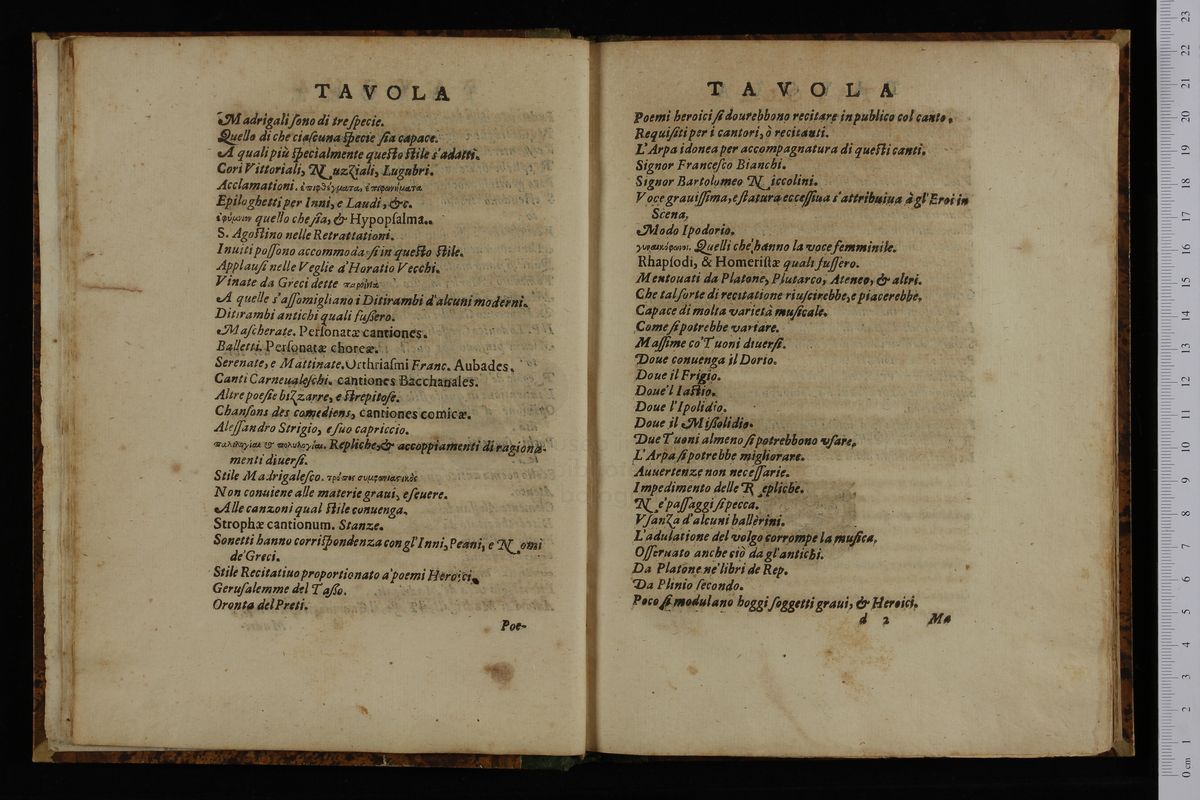 TAVOLA
Madrigali sono di tre specie.
Quello di che ciascuna specie sia capace.
A quali più specialmente questo stile s'adatti.
Cori Vittoriali, Nuzziali, Lugubri.
Acclamationi. ἐπιφθέγματα, ἐπιφωνήματα
Epiloghetti per Inni, e Laudi, &c.
ἐφύμνιον quello che sia, & Hypopsalma.
S. Agostino nelle Retrattationi.
Inuiti possono accommodarsi in questo stile.
Applausi nelle Veglie d'Horatio Vecchi.
Vinate da Greci dette παροίνια
A quelle s'assomigliano i Ditirambi d'alcuni moderni.
Ditirambi antichi quali fussero.
Mascherate. Personatæ cantiones.
Balletti. Personatæ choreæ.
Serenate, e Mattinate. Orthriasmi Franc. Aubades.
Canti Carneualeschi. cantiones Bacchanales.
Altre poesie bizzarre, e strepitose.
Chansons des comediens, cantiones comicæ.
Alessandro Strigio, e suo capriccio.
παλιλογίαι & πολυλογίαι. Repliche, & accoppiamenti di ragiona-
menti diuersi.
Stile Madrigalesco. τρόπος συμφωνιαστικὸς
Non conuiene alle materie graui, e seuere.
Alle canzoni qual stile conuenga.
Strophæ cantionum. Stanze.
Sonetti hanno corrispondenza con gl'Inni, Peani, e Nomi
de'Greci.
Stile Recitatiuo proportionato a'poemi Heroici.
Gerusalemme del Tasso.
Oronta del Preti.
Poe-
TAVOLA
Poemi heroici si dourebbono recitare in publico col canto.
Requisiti per i cantori, ò recitanti.
L'Arpa idonea per accompagnatura di questi canti.
Signor Francesco Bianchi.
Signor Bartolomeo Niccolini.
Voce grauissima, e statura eccessiua s'attribuiua à gl'Eroi in
Scena,
Modo Ipodorio.
γυναικόφωνοι. Quelli che hanno la voce femminile.
Rhapsodi, & Homeristæ quali fussero.
Mentouati da Platone, Plutarco, Ateneo, & altri.
Che tal sorte di recitatione riuscirebbe, e piacerebbe.
Capace di molta varietà musicale.
Come si potrebbe variare.
Massime co'Tuoni diuersi.
Doue conuenga il Dorio.
Doue il Frigio.
Doue'l Iastio.
Doue l'Ipolidio.
Doue il Missolidio.
Due Tuoni almeno si potrebbono vsare.
L'Arpa si potrebbe migliorare.
Auuertenze non necessarie.
Impedimento delle Repliche.
Ne'passaggi si pecca.
Vsanza d'alcuni ballerini.
L'adulatione del volgo corrompe la musica.
Osseruato anche ciò da gl'antichi.
Da Platone ne'libri de Rep.
Da Plinio secondo.
Poco si modulano hoggi soggetti graui, & Heroici.
d 2 Ma